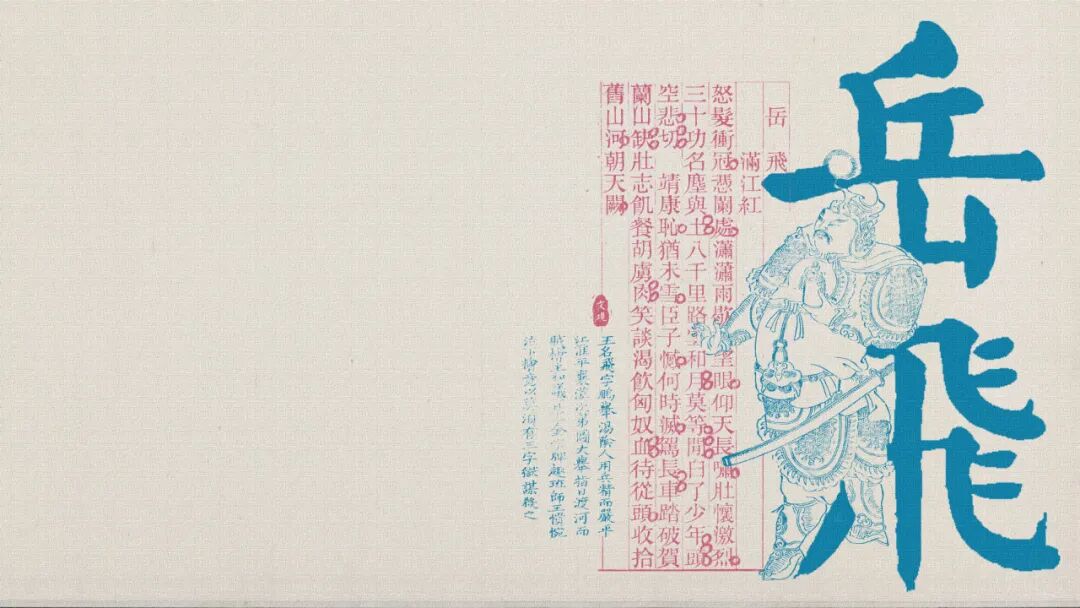 岳飛
岳飛
滿江紅
怒髮衝冠憑闌處瀟瀟雨歇望眼仰天長嘯壯懷激烈
三十功名塵與土八千里路雲和月莫等閒白了少年頭
空悲切 靖康恥猶未雪臣子憾何時滅駕長車踏破賀
蘭山缺壯志飢餐胡虜肉笑談渴飲匈奴血待從頭收拾
舊山河朝天闕
王名飛字鵬舉湯陰人用兵精而嚴平
江淮平襄漢次第圖大舉指日渡河而
賊檜主和議金字牌趣班師王憤惋
以莫須有三字獄謀殺之